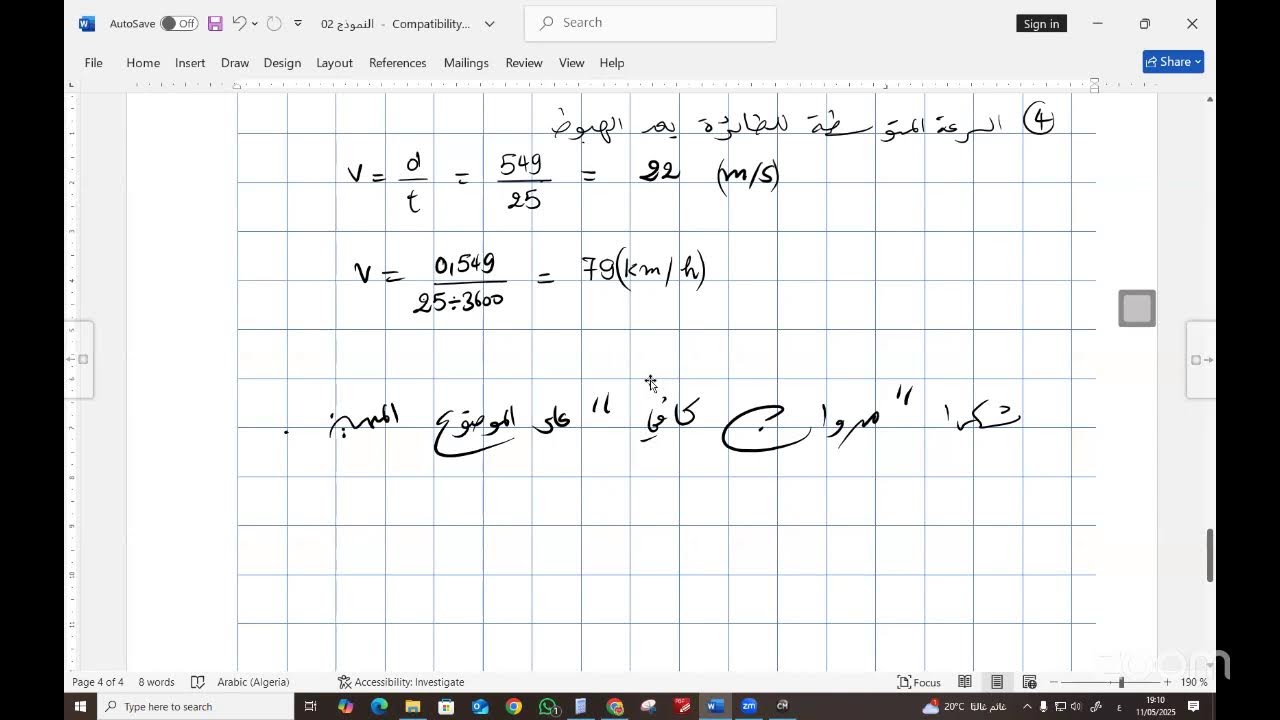 AutoSave Off النموذج 02 - Compatibility... Search Sign in
File Home Insert Draw Design Layout References Mailings Review View Help Share
④ السرعة المتوسطة للطائرة بعد الهبوط
V = d/t = 549/25 = 22 (m/s)
V = 0,549/25÷3600 = 79(km/h)
شكرا "مروان كافي" على الموضوع المميز .
zoom
Page 4 of 4 8 words Arabic (Algeria) Accessibility: Investigate Focus 190 %
Type here to search 20°C غائم غالبا 19:10
11/05/2025